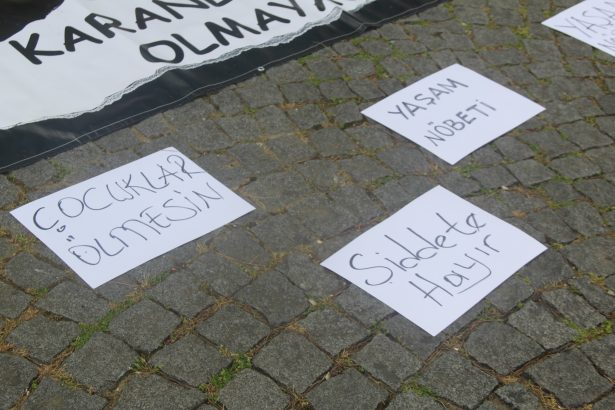 OLMAYA
YAŞAM
NÖBETİ
ÇOCUKLAR
ÖLMESİN
Şiddete
Hayır